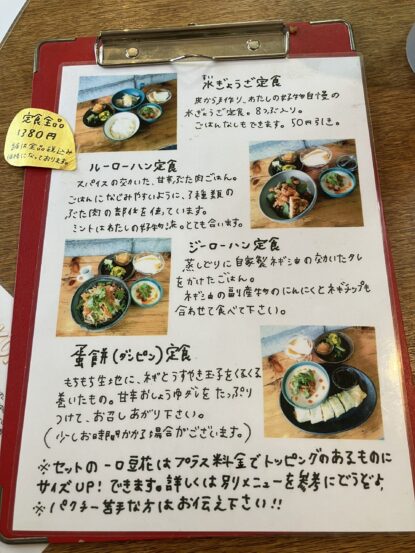 水ぎょうざ定食
すい
皮から手作り、わたしの好物自慢の
水ぎょうざ定食。8つ入り。
ごはんなしもできます。50円引き。
定食全品
1380円
価格になっております。
ルーローハン定食
スパイスの効いた、甘辛ぶた肉ごはん。
ごはんになじみやすいように、3種類の
ぶた肉の部位を使っています。
ミントはわたしの好物流。とても合います。
ジーローハン定食
蒸しどりに自家製ネギ油の効いたタレ
をかけたごはん。
ネギ油の副産物のにんにくとネギチップも
合わせて食べて下さい。
蛋餅(ダンピン)定食
もちもち生地に、ネギとうすやき玉子をくるくる
巻いたもの。甘辛おしょうゆダレをたっぷり
つけて、お召しあがり下さい。
(少しお時間かかる場合がございます。)
※セットの一口豆花はプラス料金でトッピングのあるものに
サイズUP!できます。詳しくは別メニューを参考にどうぞ♪
※パクチー苦手な方はお伝え下さい!!